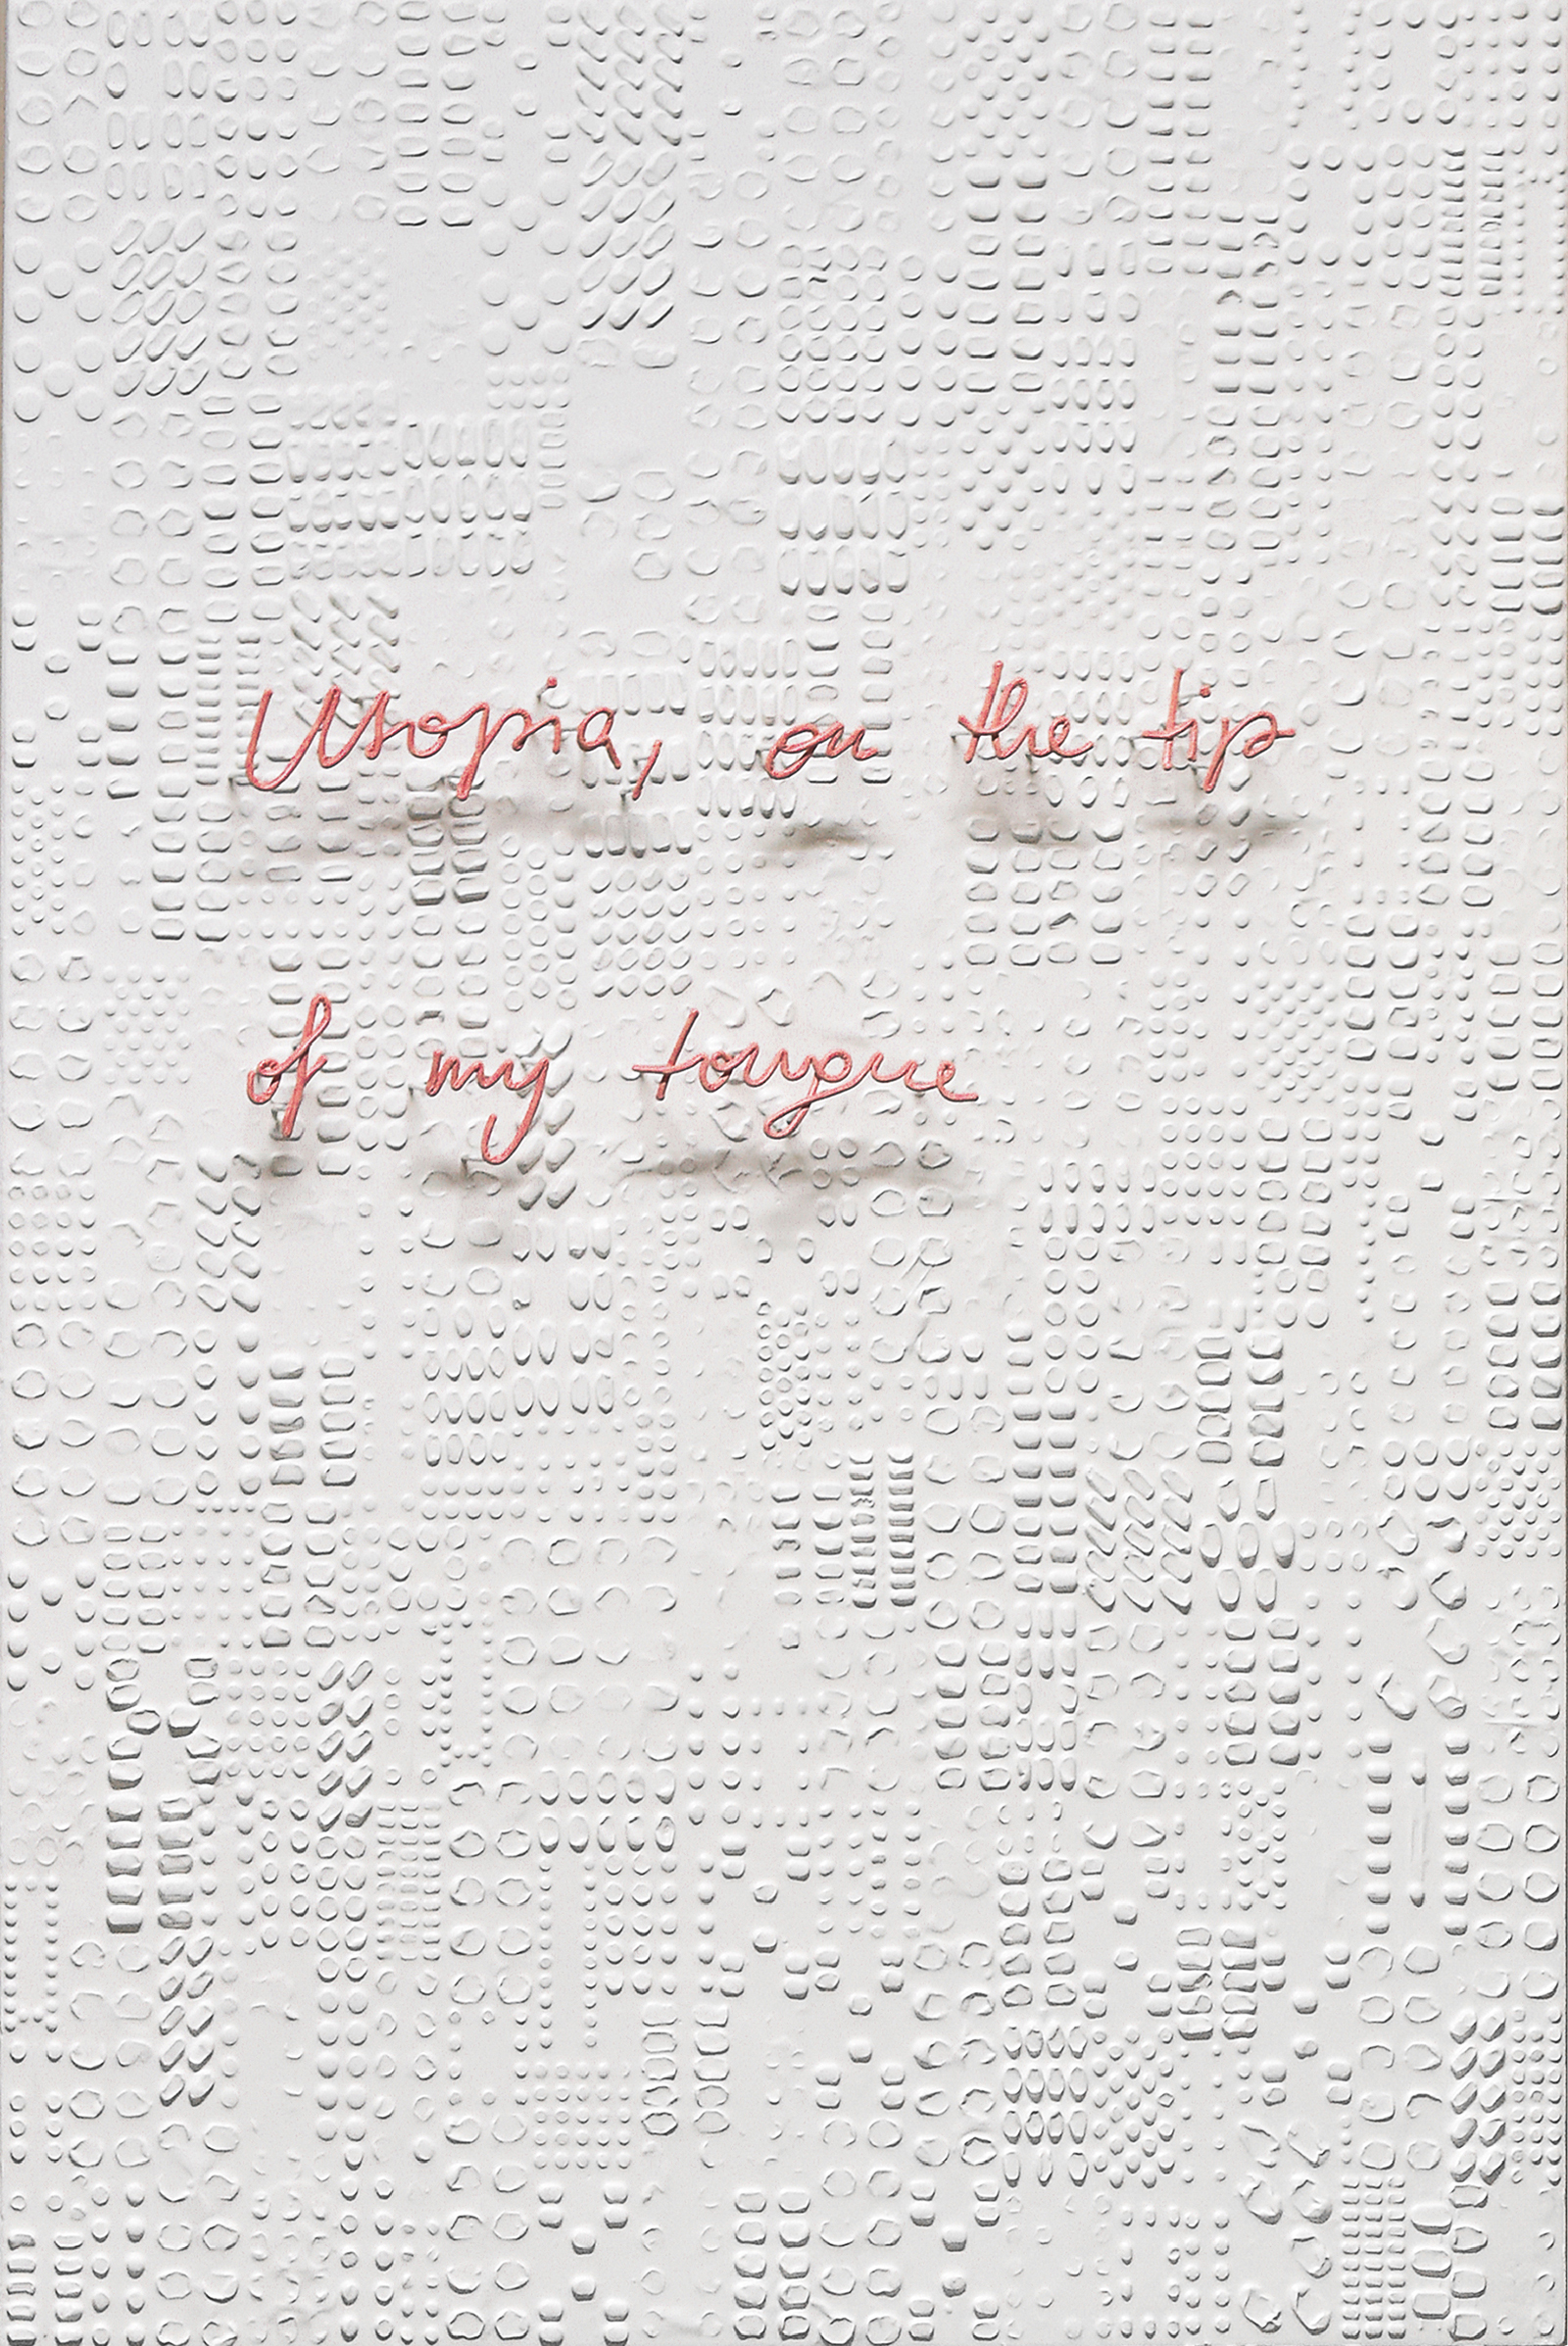 Utopia, on the tip
of my tongue